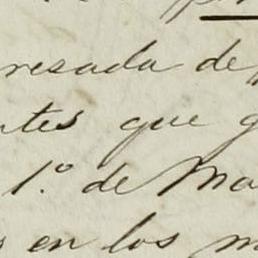 resada de
ntes que g
1.º de Ma
s en los m